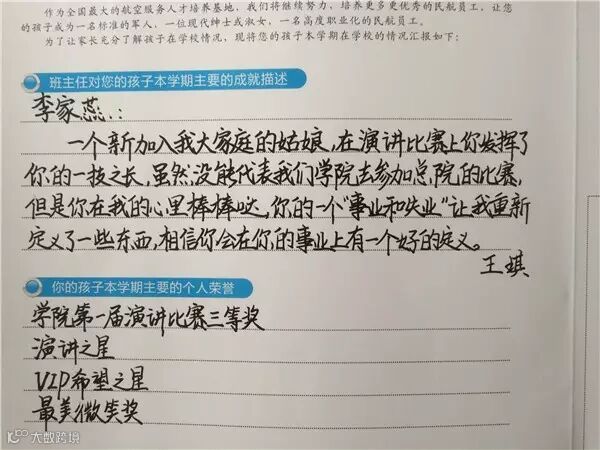 作为全国最大的航空服务人才培养基地，我们将继续努力，培养更多更优秀的民航员工，让您
的孩子成为一名标准的军人，一位现代绅士或淑女，一名高度职业化的民航员工。
为了让家长充分了解孩子在学校情况，现将您的孩子本学期在学校的情况汇报如下：
班主任对您的孩子本学期主要的成就描述
李家燕：
一个新加入我大家庭的姑娘，在演讲比赛上你发挥了
你的一技之长，虽然没能代表我们学院去参加总院的比赛，
但是你在我的心里棒棒哒，你的一个“事业和失业”让我重新
定义了一些东西，相信你会在你的事业上有一个好的定义。
王琪
你的孩子本学期主要的个人荣誉
学院第一届演讲比赛三等奖
演讲之星
VIP希望之星
最美微笑奖
大数跨境